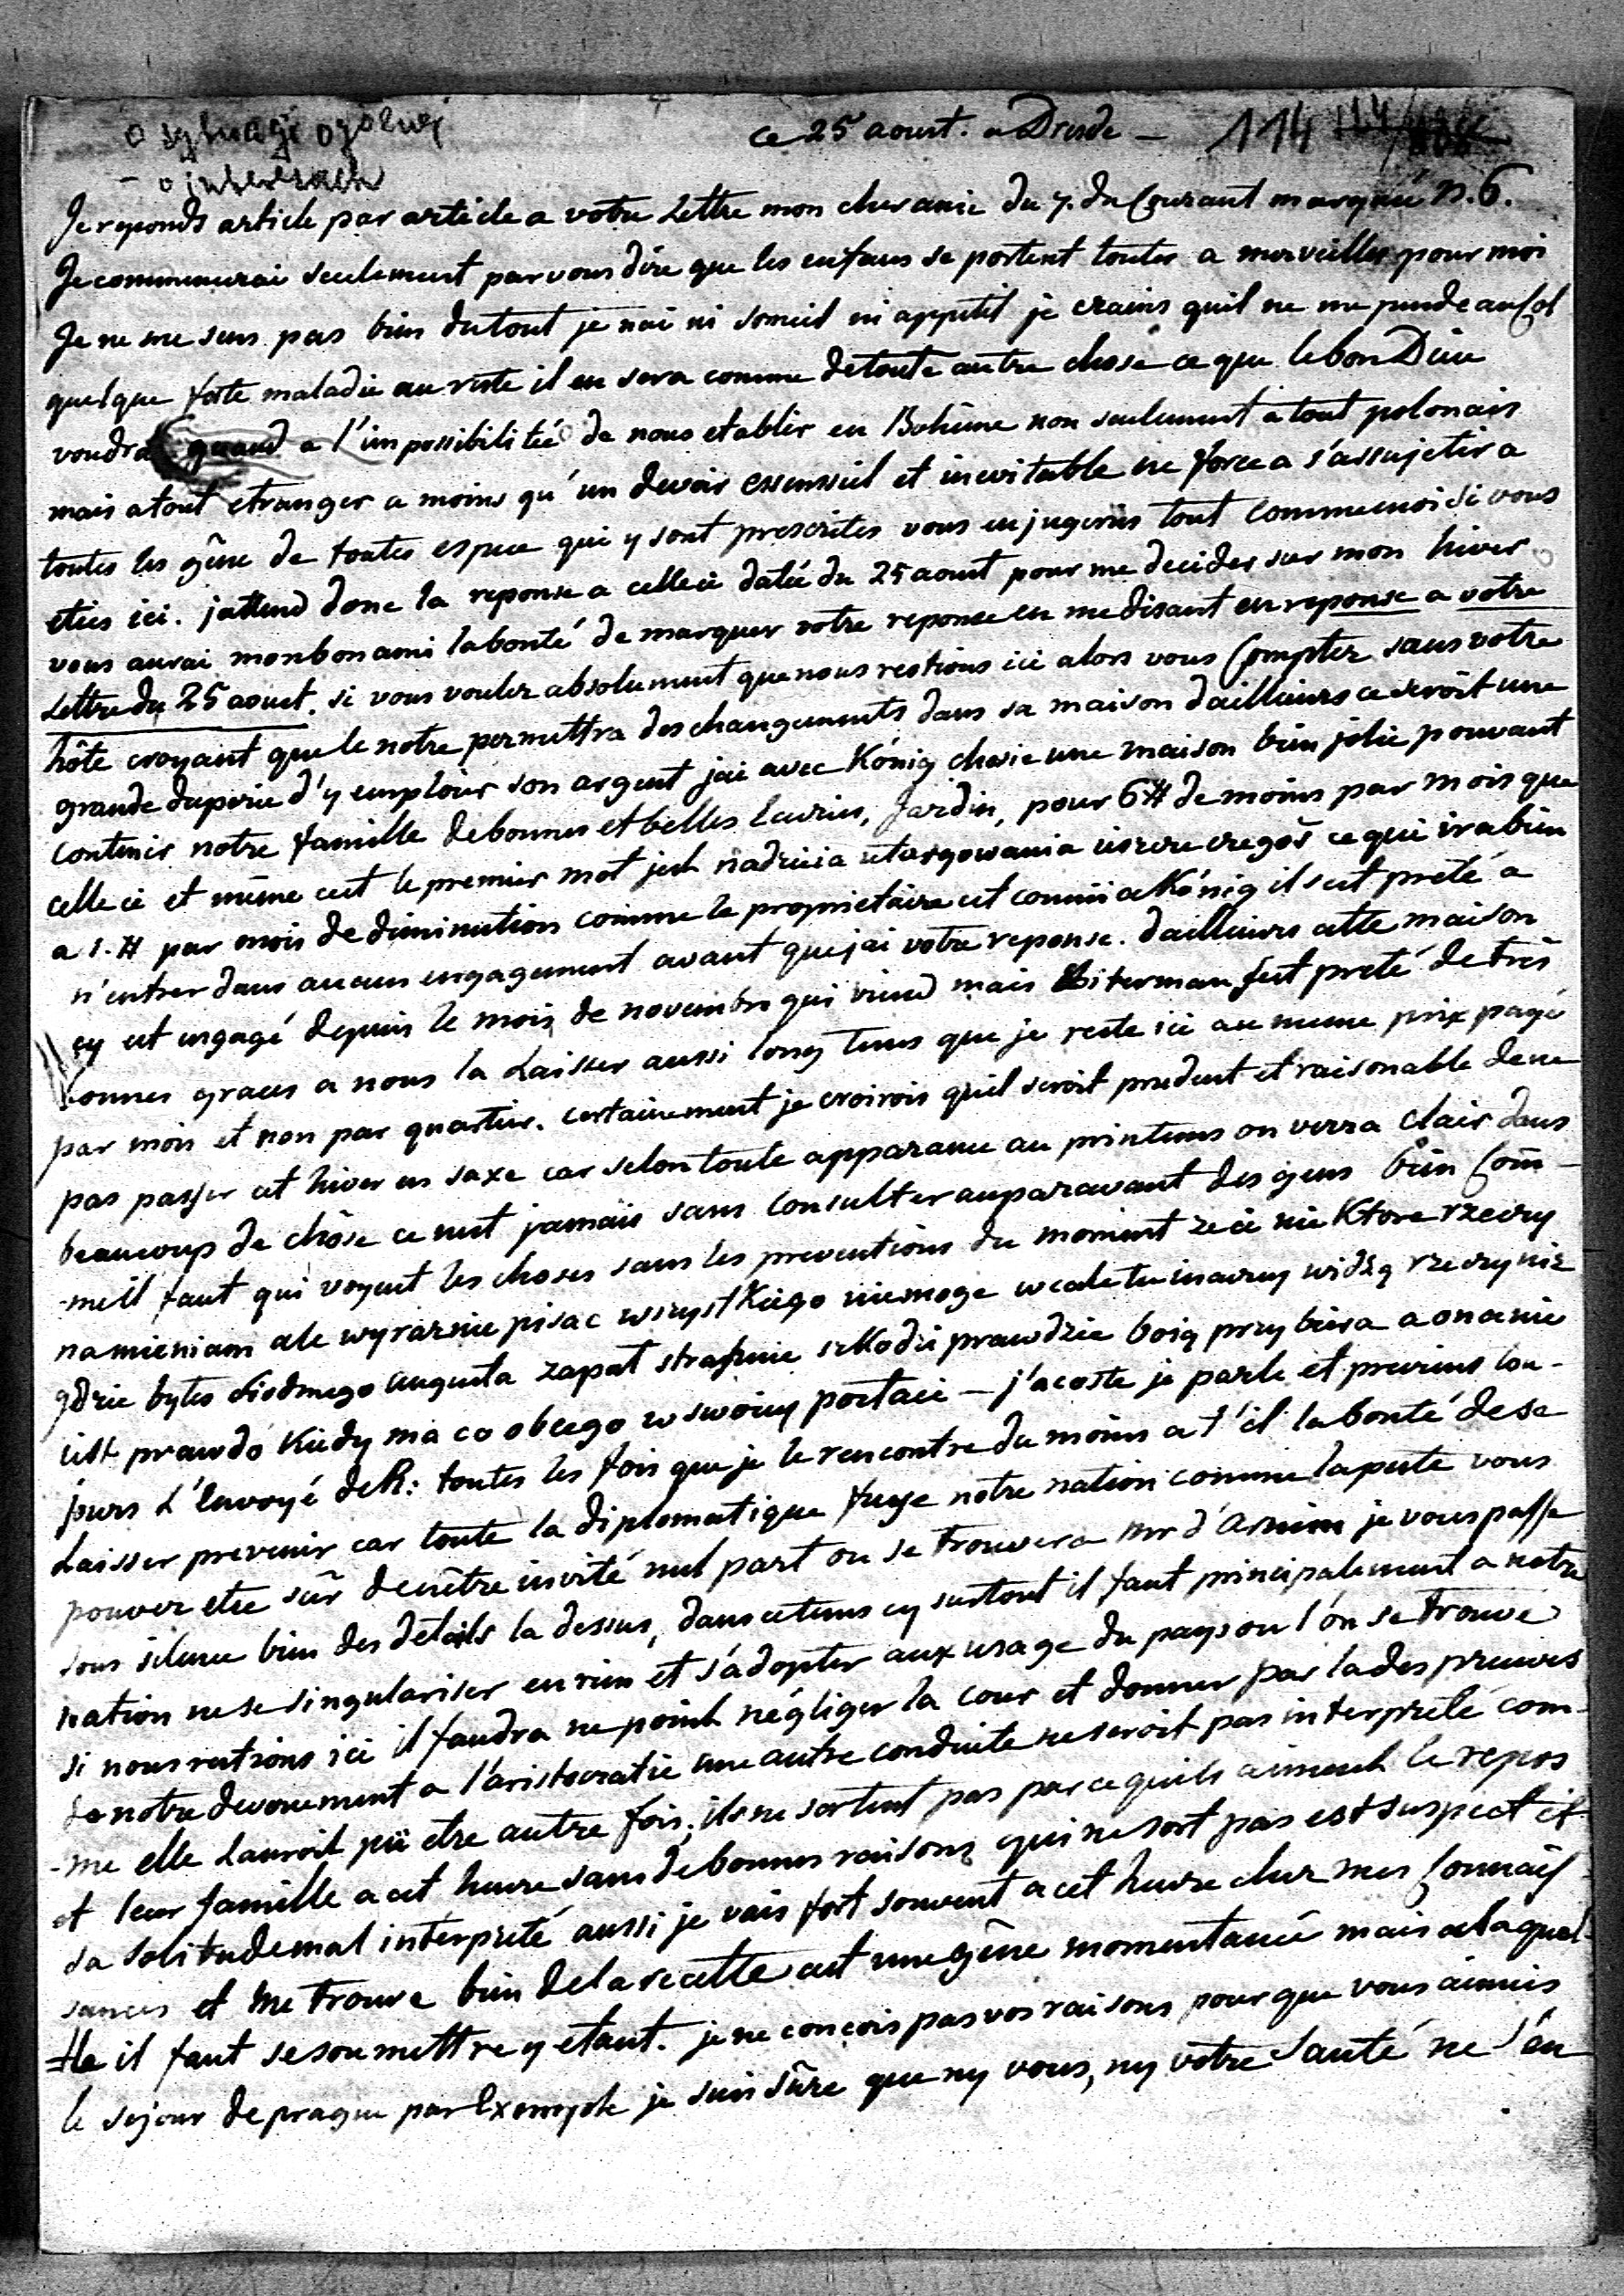 o sytuacji ogólnej
- o interesach
ce 25 aoust. a Dresde — 114 114
Je reponds article par article a votre Lettre mon cher amie du 7. du Courant marquée n. 6.
Je commencerai seulement par vous dire que les enfans se portent toutes a merveilles pour moi
Je ne me sens pas bien du tout je nai ni someil ni appetit je crains quil ne me pende au Col
quelque forte maladie au reste il en sera comme de toute autre chose ce que le bon Dieu
voudra quand a l'impossibilitée de nous etablir en Bohême non seulement a tout polonais
mais a tout etranger a moins qu'un devoir essensiel et inevitable ne force a s'assujetir a
toutes les gêne de toutes espece qui y sont prescrites vous en jugeriés tout comme moi si vous
eties ici. j'attend donc la reponse a celle ci datée du 25 aoust pour me decider sur mon hiver
vous aurai mon bon ami la bonté de marquer votre reponse en me disant en reponse a votre
Lettre du 25 aoust. si vous voulez absolument que nous restions ici alors vous Compter sans votre
hôte croyant que le notre permettra des changements dans sa maison d'ailleiurs ce seroit une
grande duperie d'y emploier son argent jai avec König choisie une maison bien jolie pouvant
contenir notre famille de bonnes et belles Ecuries, Jardin, pour 6 # de moins par mois que
celle ci et même cest le premier mot jest nadzieia utargowania ieszcze czegoś ce qui ira bien
a 1. # par mois de diminution comme le proprietaire est connu a König il sest preté a
n'entrer dans aucun engagement avant que jai votre reponse. d'ailleurs cette maison
cy est engagé depuis le mois de novembre qui viend mais Biterman sest preté de très
bonnes graces a nous la Laisser aussi long tems que je reste ici au meme prix payé
par mois et non par quartier. certainement je croirois quil seroit prudent et raisonable de ne
pas passer cet hiver en saxe car selon toute apparance au printems on verra clair dans
beaucoup de chôse ce nest jamais sans consulter auparavant des gens bien Com-
-me il faut qui voyent les choses sans les preventions du moment że ci nie ktore rzeczy
namieniam ale wyraznie pisac wszystkiego niemoge wcale tu inaczey widzą rzeczy niz
gdzie bytes siodmego augusta zapat strasznie szkodzi prawdzie boią przybiera a ona nie
iest prawdo kiedy ma co obcego w swoiey postaci — j'acoste je parle et previens tou-
jours L'Envoyé de R: toutes les fois que je le rencontre du moins a t'il la bonté de se
Laisser prevenir car toute la diplomatique fuye notre nation comme la peste vous
pouvez etre sûr de n'être invité nul part ou se trouvera Mr d'Arnim je vous passe
sous silence bien des details la dessus, dans ce tems cy surtout il faut principalement a notre
nation ne se singulariser en rien et s'adopter aux usage du pays ou l'on se trouve
si nous restions ici il faudra ne point négliger la cour et donner par la des preuves
de notre devouement a l'aristocratie une autre conduite ne seroit pas interpreté com-
-me elle L'auroit pü etre autre fois, ils ne sortent pas parcequils aiment le repos
et leur famille a cet heure sans de bonnes raisons qui ne sort pas est suspect et
sa solitude mal interpreté aussi je vais fort souvent a cet heure chez mes Connais-
sances et me trouve bien de la recette cest une gêne momentanée mais a laquel-
=lle il faut se soumettre y etant. je ne conçois pas vos raisons pour que vous aimiés
le sejour de prague par Exemple je suis sûre que ny vous, ny votre Santé ne s'en